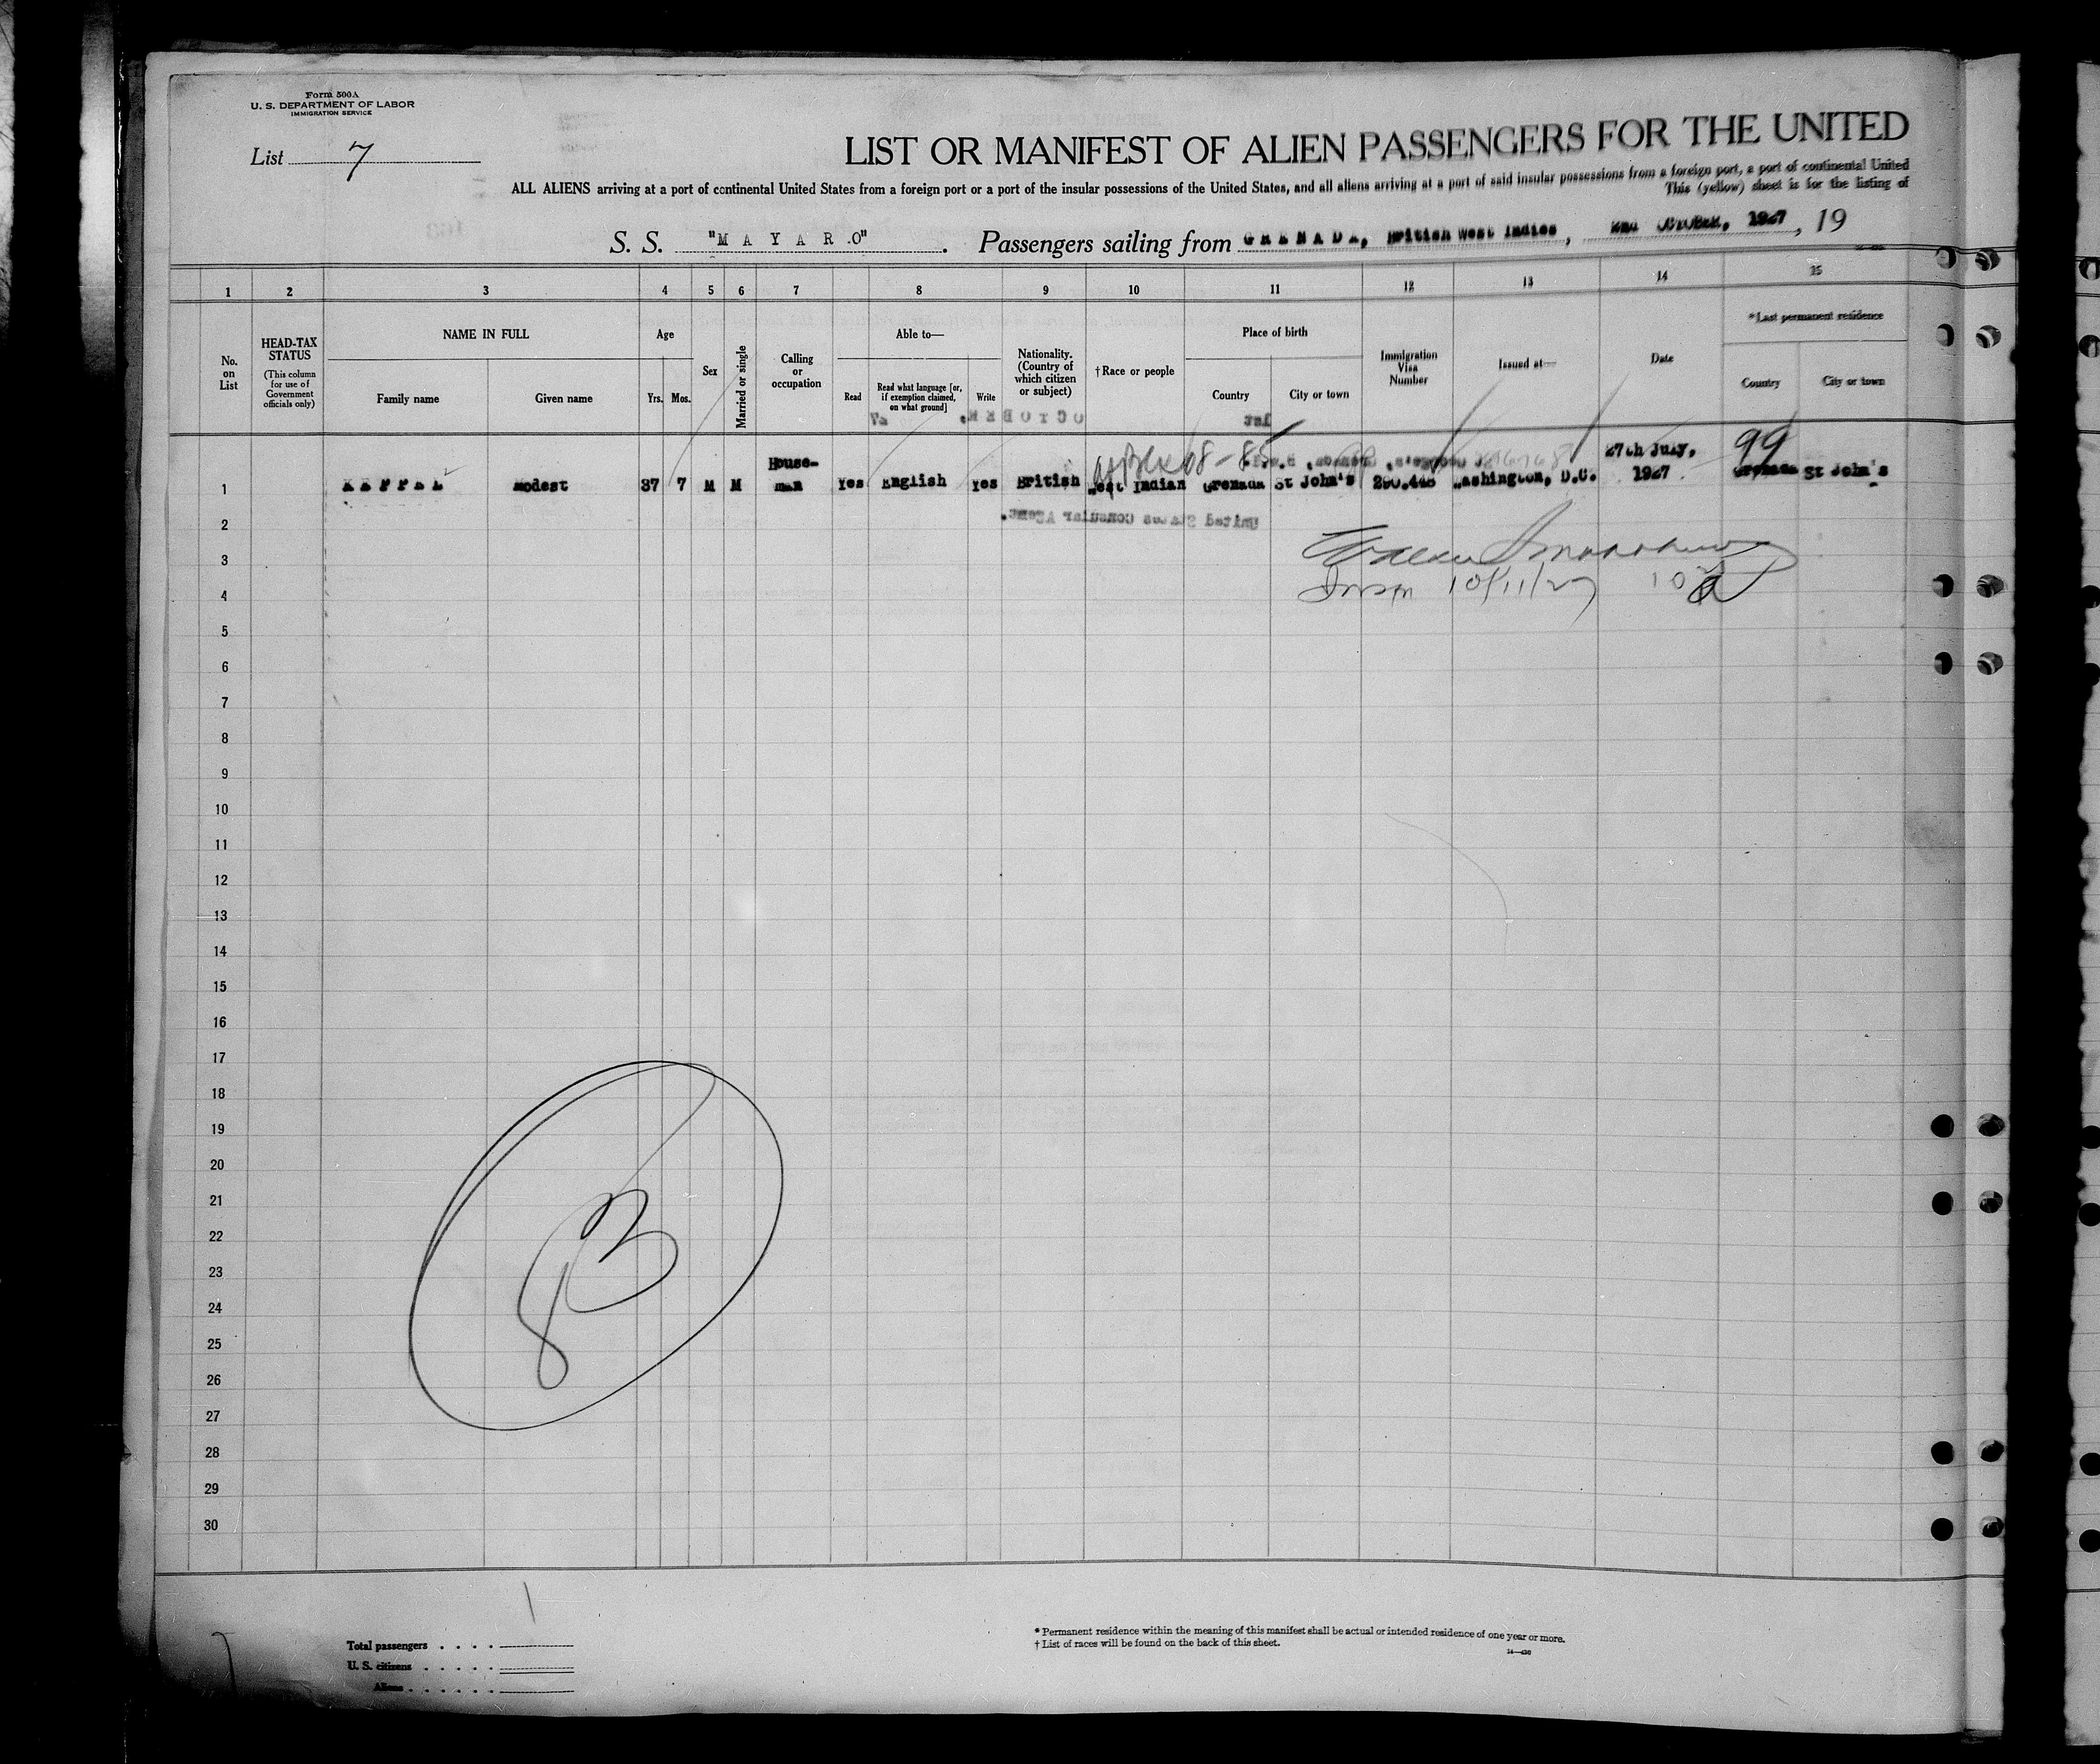 Form 500A
U. S. DEPARTMENT OF LABOR
IMMIGRATION SERVICE
List 7
LIST OR MANIFEST OF ALIEN PASSENGERS FOR THE UNITED
ALL ALIENS arriving at a port of continental United States from a foreign port or a port of the insular possessions of the United States, and all aliens arriving at a port of said insular possessions from a foreign port, a port of continental United
This (yellow) sheet is for the listing of
S. S. "M A Y A R O". Passengers sailing from GRENADA, British West Indies, 2nd OCTOBER, 1927, 19
1 2 3 4 5 6 7 8 9 10 11 12 13 14 15
No. on List
HEAD-TAX STATUS
(This column for use of Government officials only)
NAME IN FULL
Family name
Given name
Age
Yrs. Mos.
Sex
Married or single
Calling or occupation
Able to—
Read
Read what language [or, if exemption claimed, on what ground]
Write
Nationality. (Country of which citizen or subject)
† Race or people
Place of birth
Country
City or town
Immigration Visa Number
Issued at—
Date
*Last permanent residence
Country
City or town
OCTOBER,
1 Modest 37 7 M M House-man Yes English Yes British West Indian Grenada St John's Washington, D.C. 27th July, 1927 Grenada St John's
08-85
99
United States Consular Agent.
2
3
4
10/11/27
5
6
7
8
9
10
11
12
13
14
15
16
17
18
19
20
21
22
23
24
25
26
27
28
29
30
83
Total passengers . . . .
U. S. citizens . . . . .
Aliens . . . . . .
* Permanent residence within the meaning of this manifest shall be actual or intended residence of one year or more.
† List of races will be found on the back of this sheet.